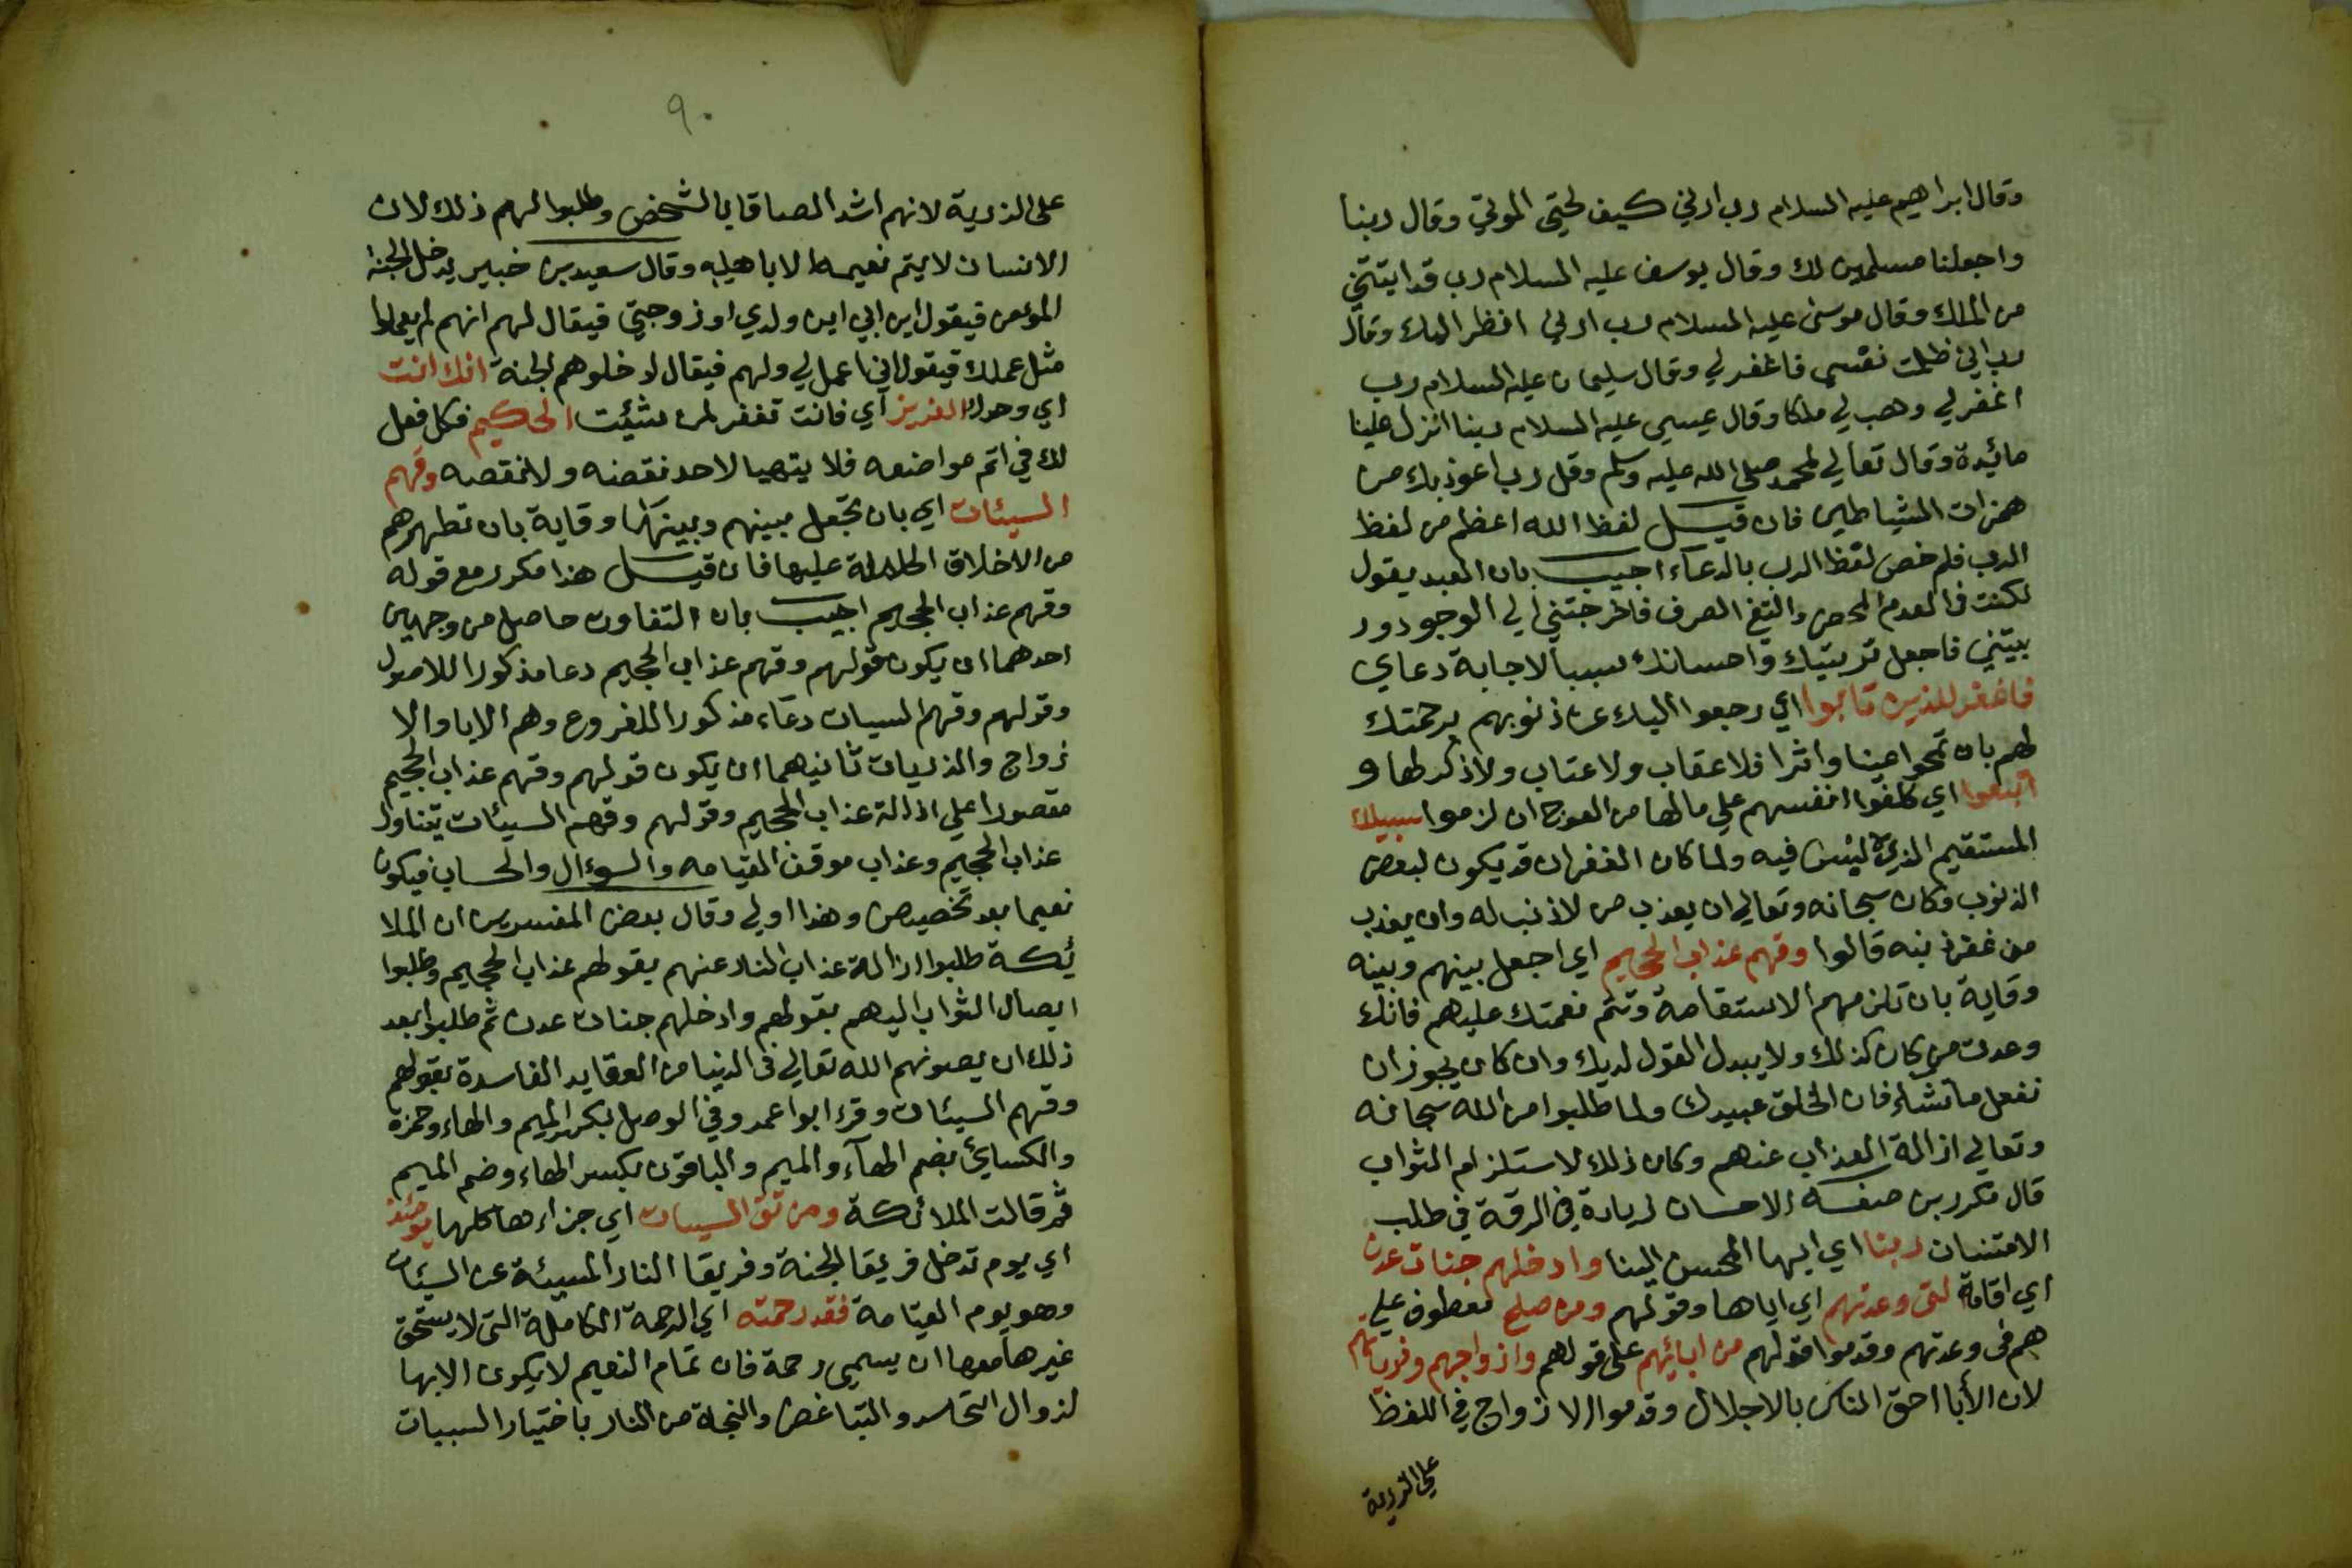 وقال ابراهيم عليه السلام رب ارني كيف تحيي الموتي وقال ربنا
واجعلنا مسلمين لك وقال يوسف عليه السلام رب قد اتيتني
من الملك وقال موسى عليه السلام رب ارني انظر اليك وقال
رب اني ظلمت نفسي فاغفر لي وقال سليمان عليه السلام رب
اغفر لي وهب لي ملكا وقال عيسي عليه السلام ربنا انزل علينا
مائدة وقال تعالي لمحمد صلى الله عليه وسلم وقل رب اعوذ بك من
همزات الشياطين فان قيل لفظ الله اعظم من لفظ
الرب فلم خص لفظ الرب بالدعاء اجيب بان العبد يقول
لكنت في العدم المحض والنفي الصرف فاخرجتني الي الوجود ور
بيتني فاجعل تربيتك واحسانك سببا لاجابة دعاي
فاغفر للذين تابوا اي رجعوا اليك عن ذنوبهم برحمتك
لهم بان تمحوا عينا واثرا فلا عقاب ولا عتاب ولا ذكر لها و
اتبعوا اي كلفوا انفسهم علي مالها من العوج ان لزموا سبيلك
المستقيم الذي لا لبس فيه ولما كان الغفران قد يكون لبعض
الذنوب وكان سبحانه وتعالي ان يعذب من لا ذنب له وان يعذب
من غفر ذنبه قالوا وقهم عذاب الجحيم اي اجعل بينهم وبينه
وقاية بان تلزمهم الاستقامة وتتم نعمتك عليهم فانك
وعدت من كان كذلك ولا يبدل القول لديك وان كان يجوز ان
تفعل ما تشاء فان الخلق عبيدك ولما طلبوا من الله سبحانه
وتعالي ازالة العذاب عنهم وكان ذلك لا استلزام الثواب
قال مكررين صفة الاحسان لزيادة في الرقة في طلب
الامتنان ربنا اي ايها المحسن الينا وادخلهم جنات عدن
اي اقامة التي وعدتهم اي اياها وقولهم ومن صلح معطوف علي
هم في وعدتهم وقدموا قولهم من ابائهم على قولهم وازواجهم وذرياتهم
لان الأبا احق الناس بالاجلال وقدموا الازواج في اللفظ
علي الذرية
٩٠
على الذرية لانهم اشد الصاقا بالشخص وطلبوا لهم ذلك لان
الانسان لا يتم نعيمه الا باهله وقال سعيد بن خبير يدخل الجنة
المؤمن فيقول اين ابي اين ولدي اوزوجتي فيقال لهم انهم لم يعملوا
مثل عملك فيقول اني اعمل لي ولهم فيقال ادخلوهم الجنة انك انت
اي وحدك العزيز اي فانت تغفر لمن شئيت الحكيم فكل فعل
لك في اتم مواضعه فلا يتهيا لاحد نقضه ولا نقصه وقهم
السيئات اي بان تجعل بينهم وبينها وقاية بان تطهرهم
من الاخلاق عليها فان قيل هذا مكرر مع قوله
وقهم عذاب الجحيم اجيب بان التفاوت حاصل من وجهين
احدهما ان يكون قولهم وقهم عذاب الجحيم دعا مذكورا للاصول
وقولهم وقهم السيات دعاء مذكورا للفروع وهم الابا والا
زواج والذريات ثانيهما ان يكون قولهم وقهم عذاب الجحيم
مقصورا علي ازالة عذاب الجحيم وقولهم وقهم السيئات يتناول
عذاب الجحيم وعذاب موقف القيامه والسوءال والحساب فيكون
نعيما بعد تخصيص وهذا اولي وقال بعض المفسرين ان الملا
ئكة طلبوا ازالة عذاب النار عنهم بقولهم عذاب الجحيم وطلبوا
ايصال الثواب اليهم بقولهم وادخلهم جنات عدن ثم طلبوا بعد
ذلك ان يصونهم الله تعالي في الدنيا من العقايد الفاسدة بقولهم
وقهم السيئات وقرء ابوا عمر وفي الوصل بكسر الميم والهاء وحمزة
والكسايئ بضم الهآء والميم والباقون بكسر الهاء وضم الميم
ثم قالت الملائكة ومن تق السيات اي جزاءها كلها يومئذ
اي يوم تدخل فريقا الجنة وفريقا النار المسيئة عن السيئات
وهو يوم القيامة فقد رحمته اي الرحمة الكاملة التي لا يستحق
غيرها معها ان يسمي رحمة فان تمام النعيم لا يكون الا بها
لزوال التحاسد والتباغض والنجاة من النار باختيار السيات